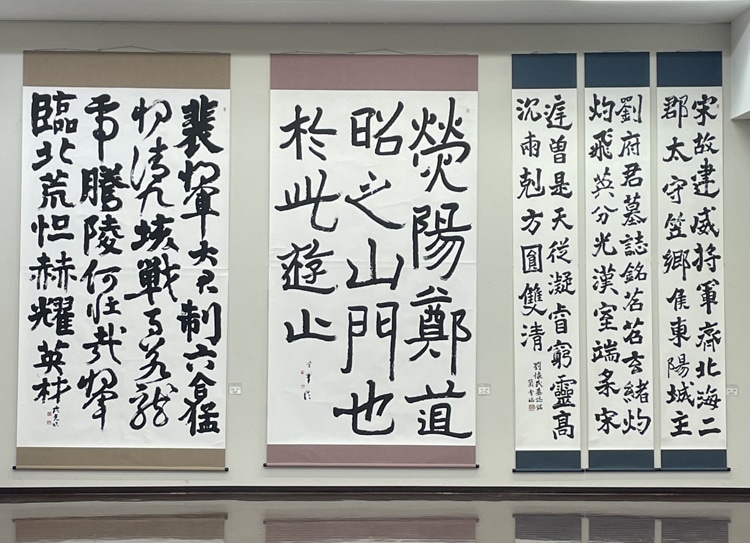 宋故建威将軍齊北海二
郡太守笠郷侯東陽城主
劉府君墓誌銘苕苕玄緒灼
灼飛英分光漢室端彔宋
庭曽是天從凝睿窮靈高
沉兩剋方圓雙清
劉懐民墓誌銘
熒陽鄭道
昭之山門也
於此遊止
裴將軍大君制六合猛
将清九垓戰馬若龍
虎騰陵何壯哉
臨北荒怛赫耀英材